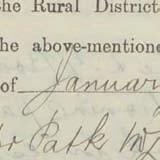 the Rural District
the above-mentione
of January
Patk